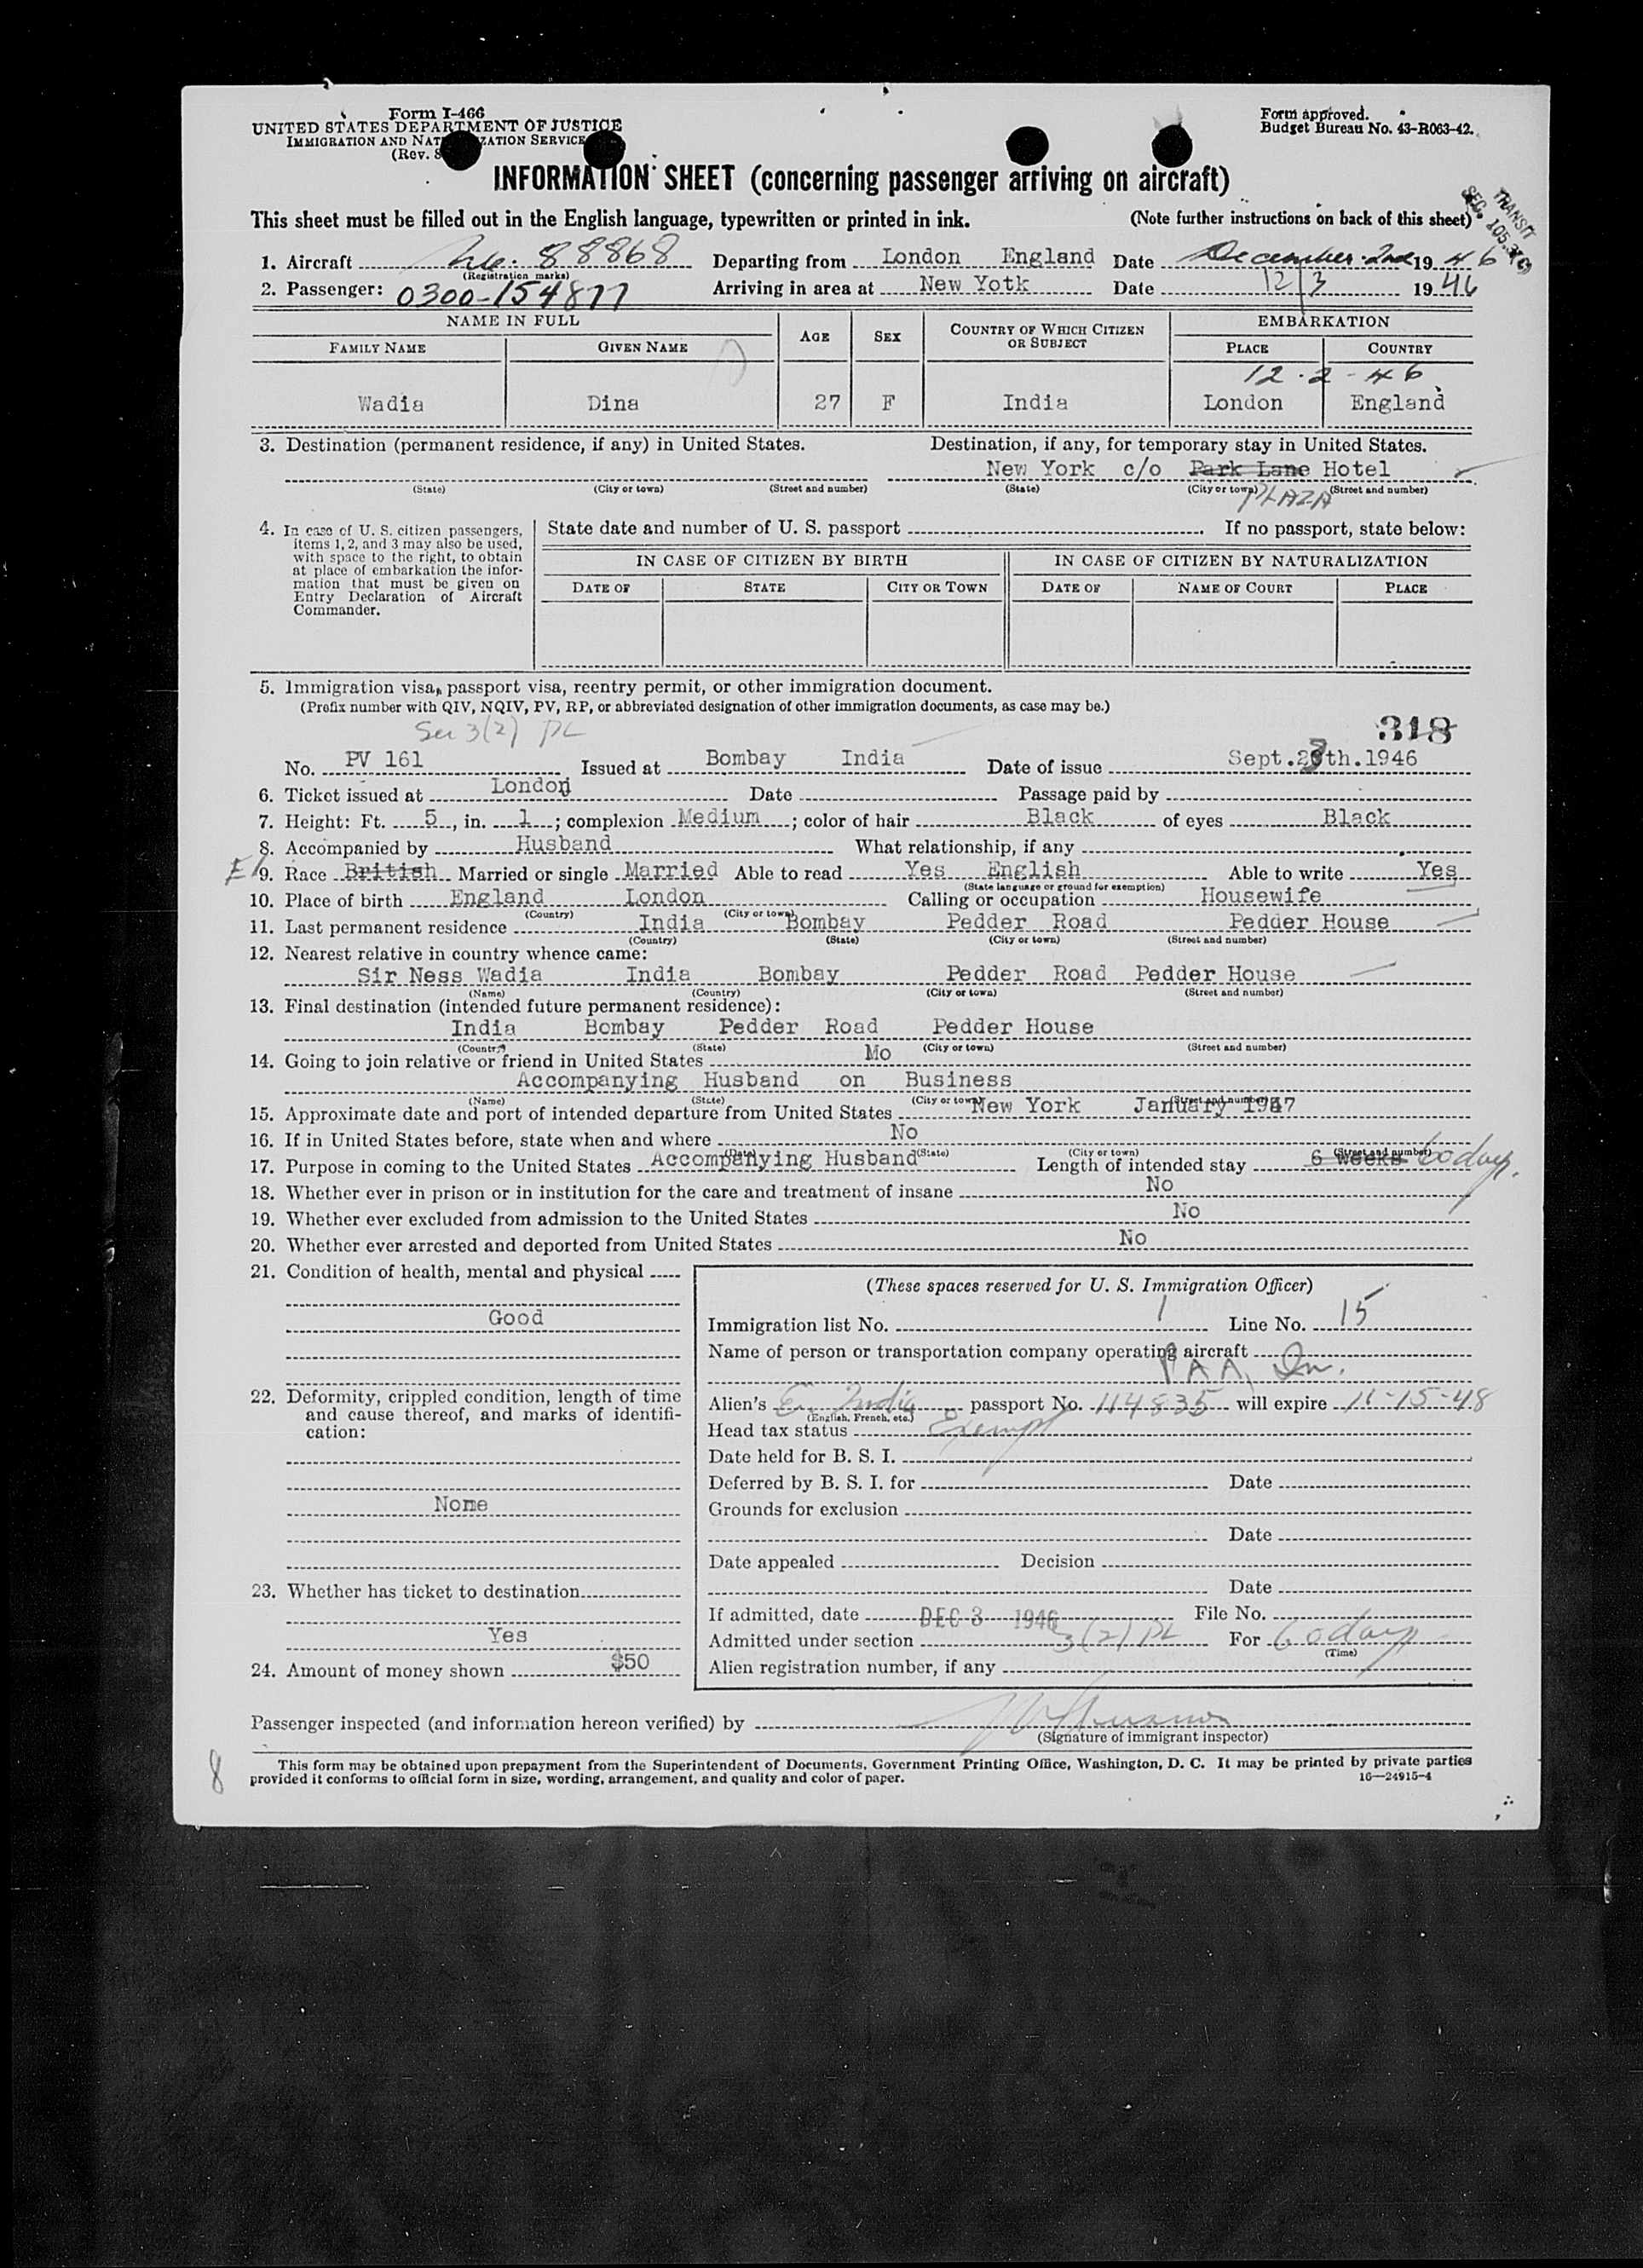 Form I-466
UNITED STATES DEPARTMENT OF JUSTICE
IMMIGRATION AND NATURALIZATION SERVICE
(Rev.
Form approved.
Budget Bureau No. 43-R063-42.
INFORMATION SHEET (concerning passenger arriving on aircraft)
This sheet must be filled out in the English language, typewritten or printed in ink. (Note further instructions on back of this sheet)
TRANSIT
SEC. 105.3
1. Aircraft 88868 Departing from London England Date December 2nd 19 46
(Registration marks)
2. Passenger: 0300-154877 Arriving in area at New Yotk Date 12/3 19 46
NAME IN FULL AGE SEX COUNTRY OF WHICH CITIZEN OR SUBJECT EMBARKATION
FAMILY NAME GIVEN NAME PLACE COUNTRY
12-2-46
Wadia Dina 27 F India London England
3. Destination (permanent residence, if any) in United States. Destination, if any, for temporary stay in United States.
New York c/o Park Lane Hotel
(State) (City or town) (Street and number) (State) (City or town) (Street and number)
PLAZA
4. In case of U. S. citizen passengers, items 1, 2, and 3 may also be used, with space to the right, to obtain at place of embarkation the information that must be given on Entry Declaration of Aircraft Commander.
State date and number of U. S. passport If no passport, state below:
IN CASE OF CITIZEN BY BIRTH IN CASE OF CITIZEN BY NATURALIZATION
DATE OF STATE CITY OR TOWN DATE OF NAME OF COURT PLACE
5. Immigration visa, passport visa, reentry permit, or other immigration document.
(Prefix number with QIV, NQIV, PV, RP, or abbreviated designation of other immigration documents, as case may be.)
3(2) PL 318
No. PV 161 Issued at Bombay India Date of issue Sept.23th.1946
6. Ticket issued at London Date Passage paid by
7. Height: Ft. 5, in. 1; complexion Medium; color of hair Black of eyes Black
8. Accompanied by Husband What relationship, if any
9. Race British Married or single Married Able to read Yes English Able to write Yes
(State language or ground for exemption)
10. Place of birth England London Calling or occupation Housewife
(Country) (City or town)
11. Last permanent residence India Bombay Pedder Road Pedder House
(Country) (State) (City or town) (Street and number)
12. Nearest relative in country whence came:
Sir Ness Wadia India Bombay Pedder Road Pedder House
(Name) (Country) (City or town) (Street and number)
13. Final destination (intended future permanent residence):
India Bombay Pedder Road Pedder House
(Country) (State) (City or town) (Street and number)
14. Going to join relative or friend in United States Mo
Accompanying Husband on Business
(Name) (State) (City or town) (Street and number)
15. Approximate date and port of intended departure from United States New York January 1947
16. If in United States before, state when and where No
(Date) (State) (City or town) (Street and number)
17. Purpose in coming to the United States Accompanying Husband Length of intended stay 6 weeks 60 days.
18. Whether ever in prison or in institution for the care and treatment of insane No
19. Whether ever excluded from admission to the United States No
20. Whether ever arrested and deported from United States No
21. Condition of health, mental and physical
Good
22. Deformity, crippled condition, length of time and cause thereof, and marks of identification:
None
23. Whether has ticket to destination
Yes
24. Amount of money shown $50
(These spaces reserved for U. S. Immigration Officer)
Immigration list No. 1 Line No. 15
Name of person or transportation company operating aircraft
PAA, In.
Alien's E. India passport No. 114835 will expire 11-15-48
(English, French, etc.)
Head tax status Exempt
Date held for B. S. I.
Deferred by B. S. I. for Date
Grounds for exclusion
Date
Date appealed Decision
Date
If admitted, date DEC 3 1946 File No.
Admitted under section 3(2) PL For 60 days
(Time)
Alien registration number, if any
Passenger inspected (and information hereon verified) by
(Signature of immigrant inspector)
8
This form may be obtained upon prepayment from the Superintendent of Documents, Government Printing Office, Washington, D. C. It may be printed by private parties
provided it conforms to official form in size, wording, arrangement, and quality and color of paper. 16—24915-4